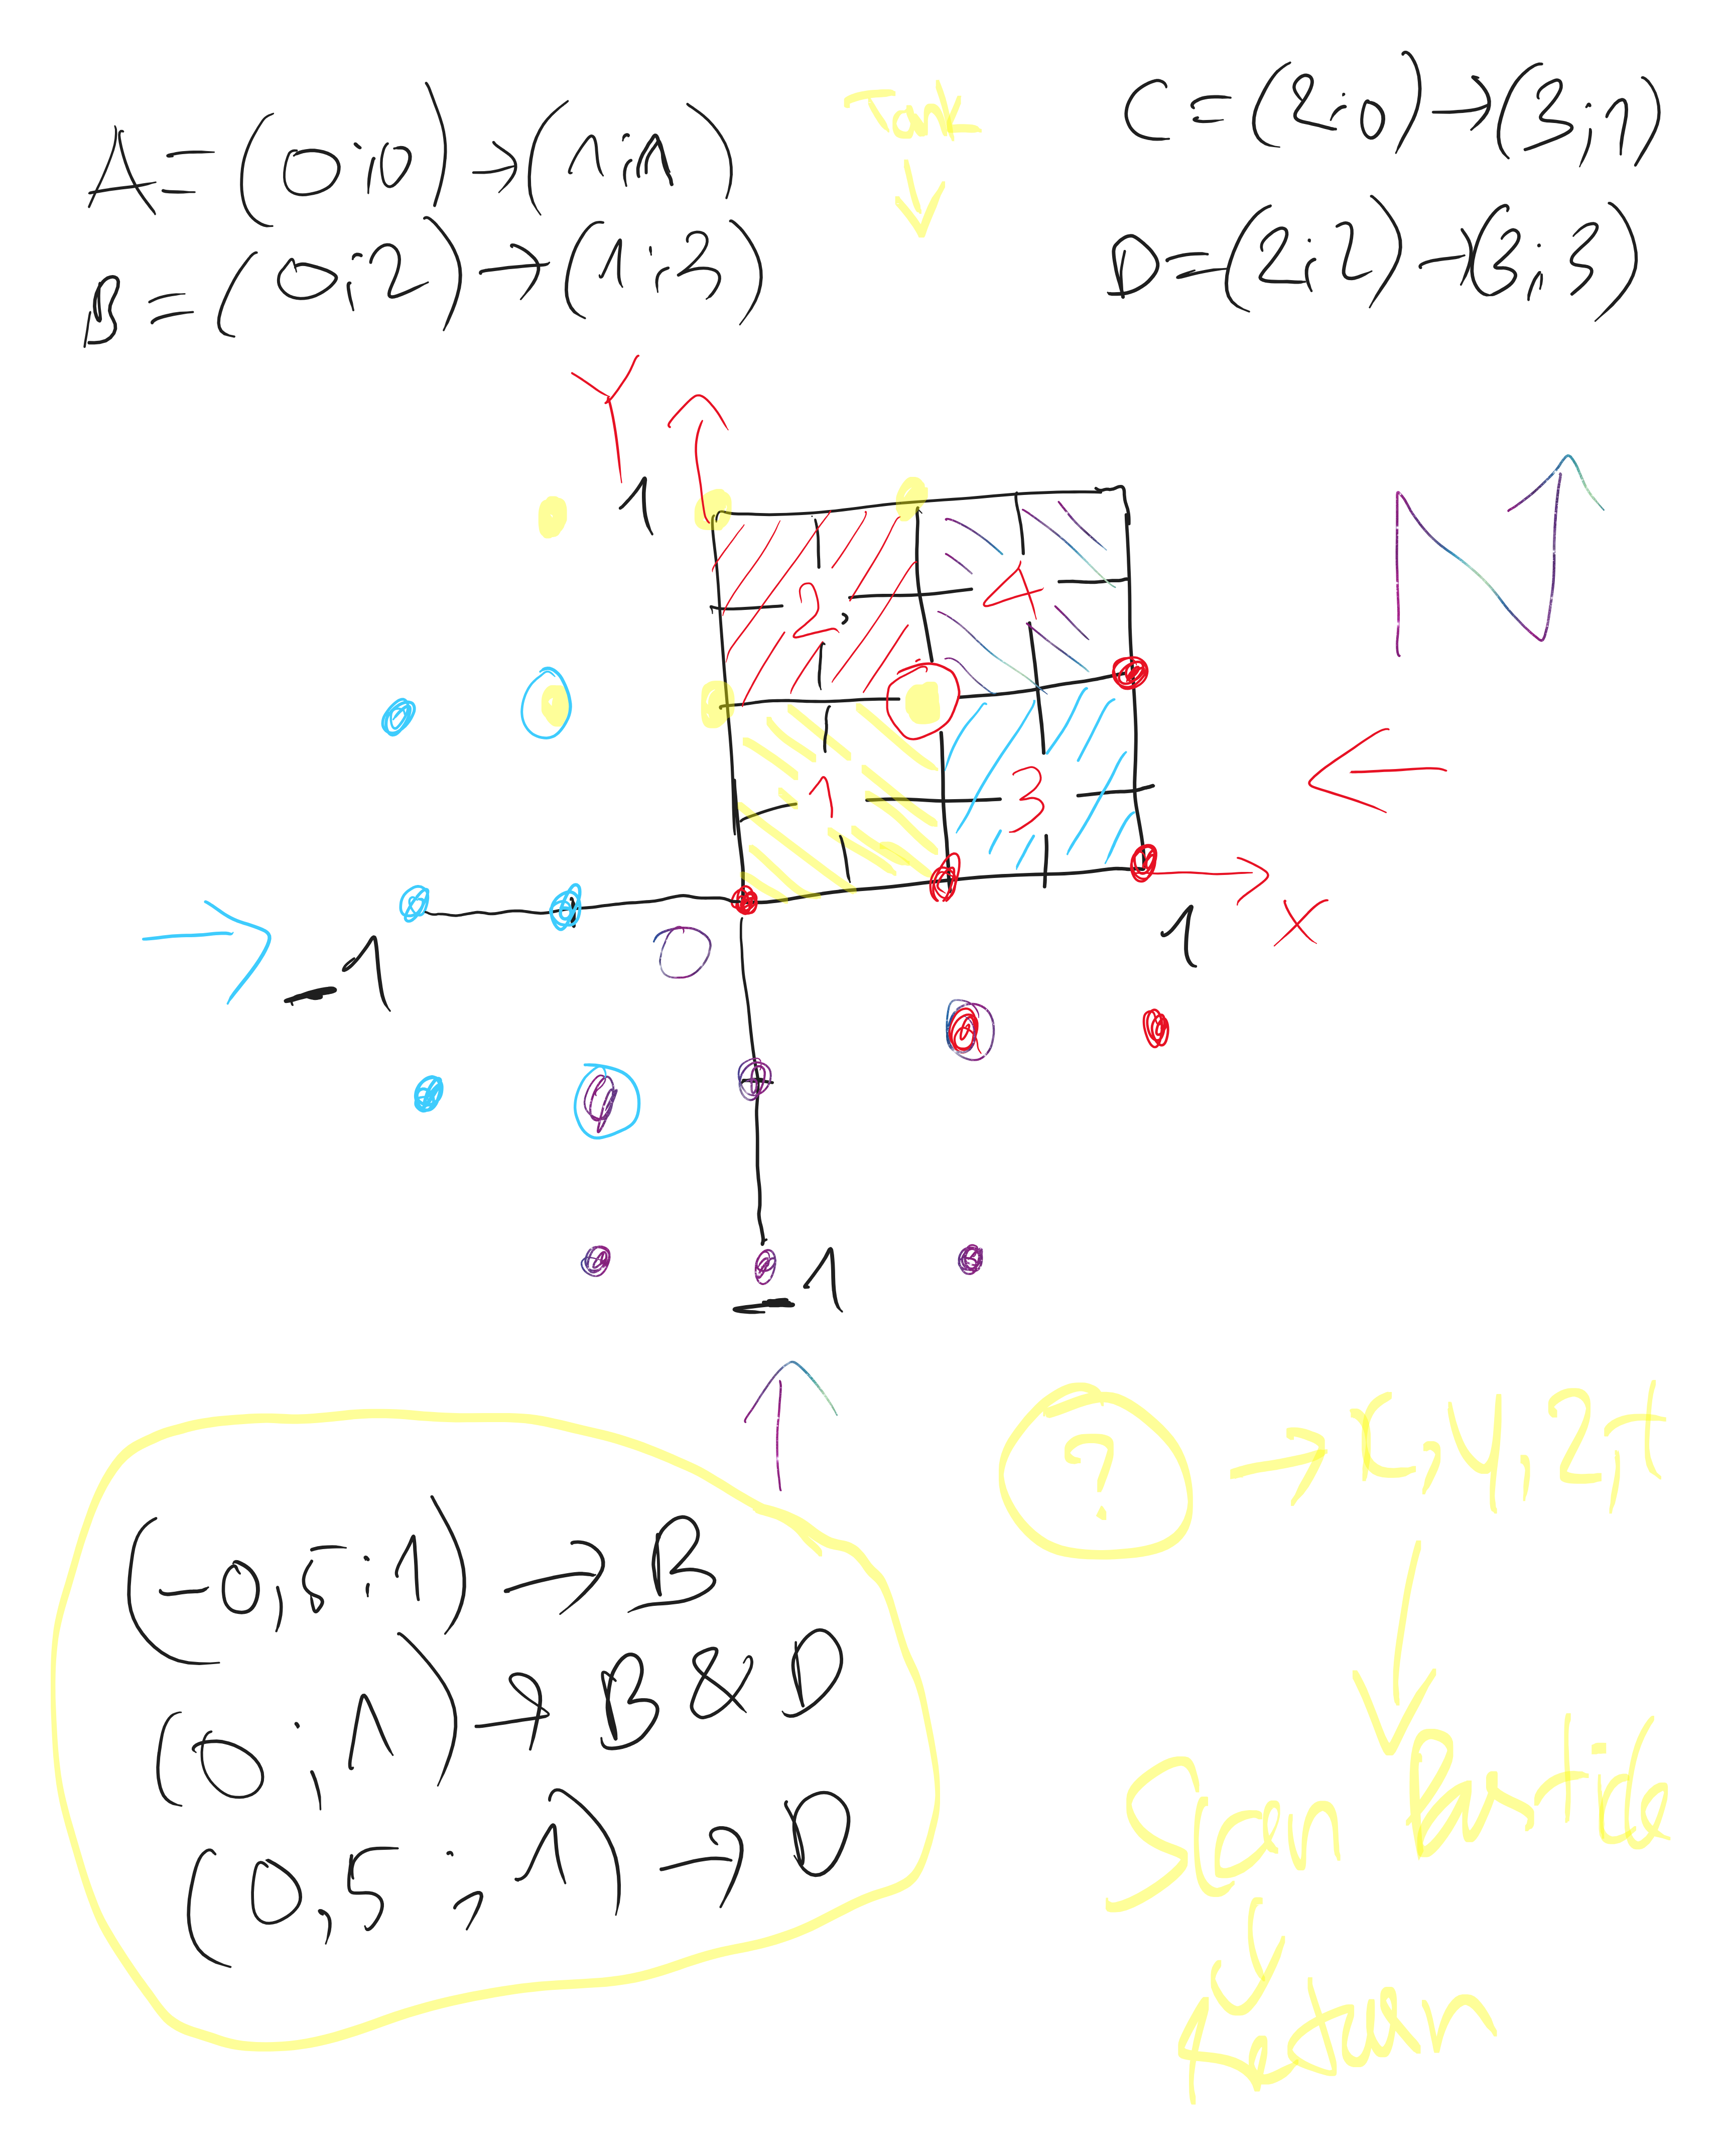 A = (0;0) → (1;1)
B = (0;2) → (1;3)
Tank
C = (2;0) → (3;1)
D = (2;2) → (3;3)
Y
1
2
4
N
1
3
-1
0
1
X
-1
(-0,5;1) → B
(0;1) → B & D
(0,5;1) → D
? → x,y,z,t
Scan Particle
Return